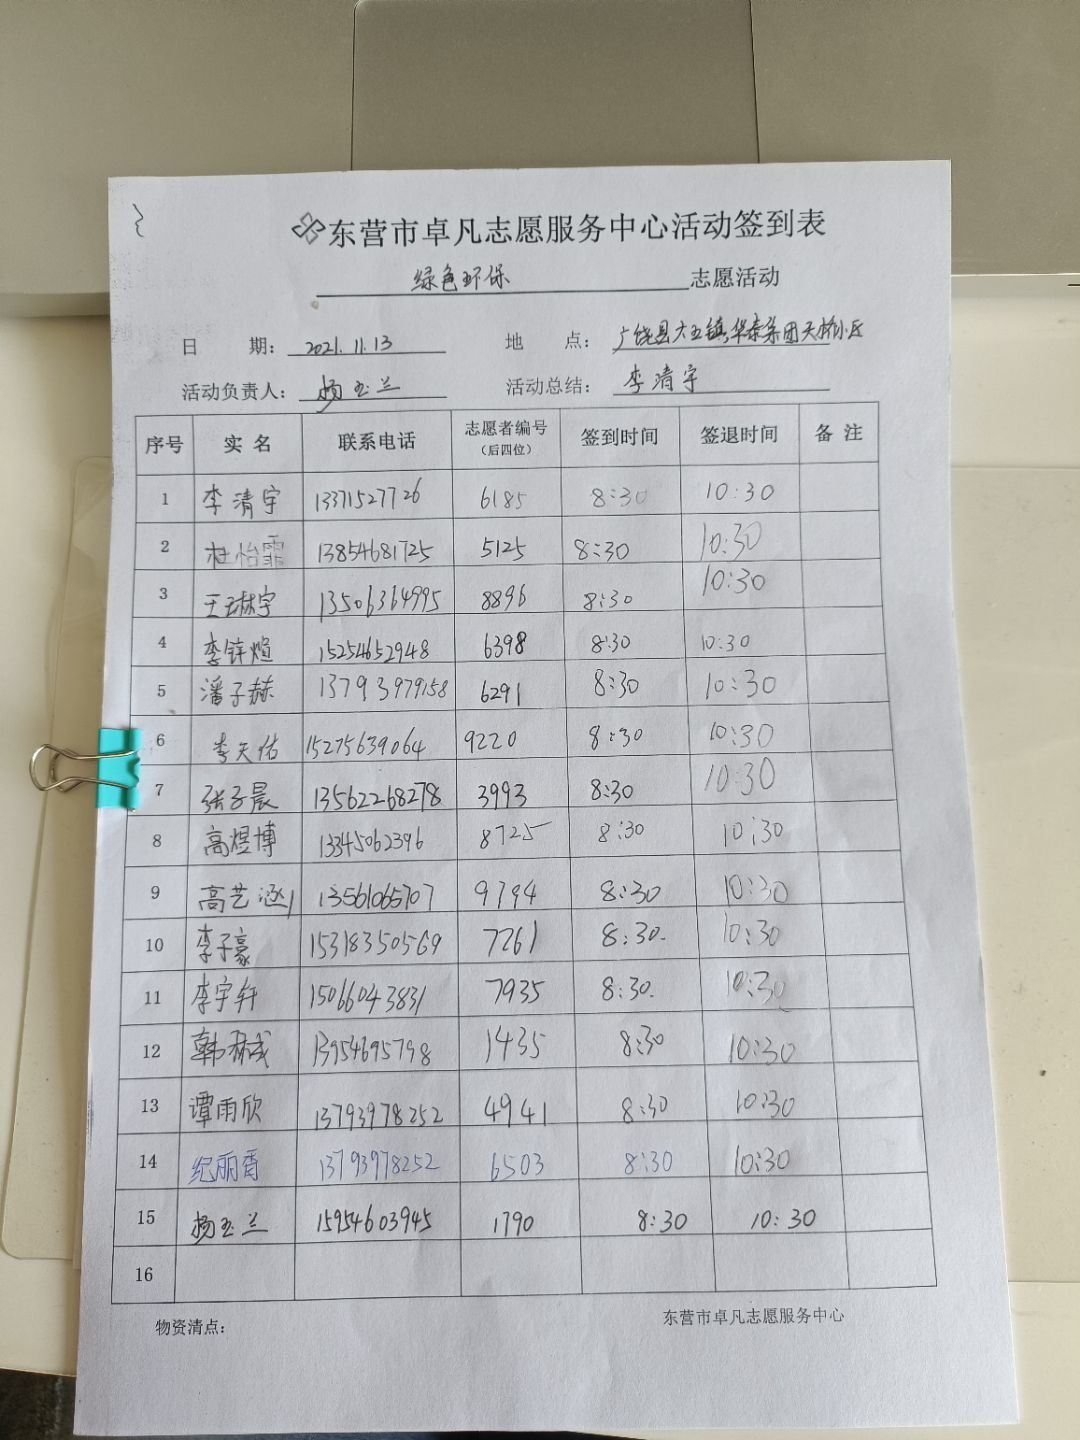 东营市卓凡志愿服务中心活动签到表
绿色环保 志愿活动
日 期: 2021.11.13 地 点: 广饶县大王镇,华泰集团天桥小区
活动负责人: 杨玉兰 活动总结: 李清宇
序号 实 名 联系电话 志愿者编号(后四位) 签到时间 签退时间 备 注
1 李清宇 13371527726 6185 8:30 10:30
2 杜怡霏 13854681725 5125 8:30 10:30
3 王琳宇 13506364995 8896 8:30 10:30
4 李锌煊 15254652948 6398 8:30 10:30
5 潘子赫 13793979158 6291 8:30 10:30
6 李天佑 15275639064 9220 8:30 10:30
7 张子晨 13562268278 3993 8:30 10:30
8 高煜博 13345062396 8725 8:30 10:30
9 高艺涵 13561065707 9794 8:30 10:30
10 李子豪 15318350569 7261 8:30. 10:30
11 李宇轩 15066043831 7935 8:30. 10:30
12 韩 13954695798 1435 8:30 10:30
13 谭雨欣 13793978252 4941 8:30 10:30
14 纪丽香 13793978252 6503 8:30 10:30
15 杨玉兰 15954603945 1790 8:30 10:30
16
物资清点: 东营市卓凡志愿服务中心